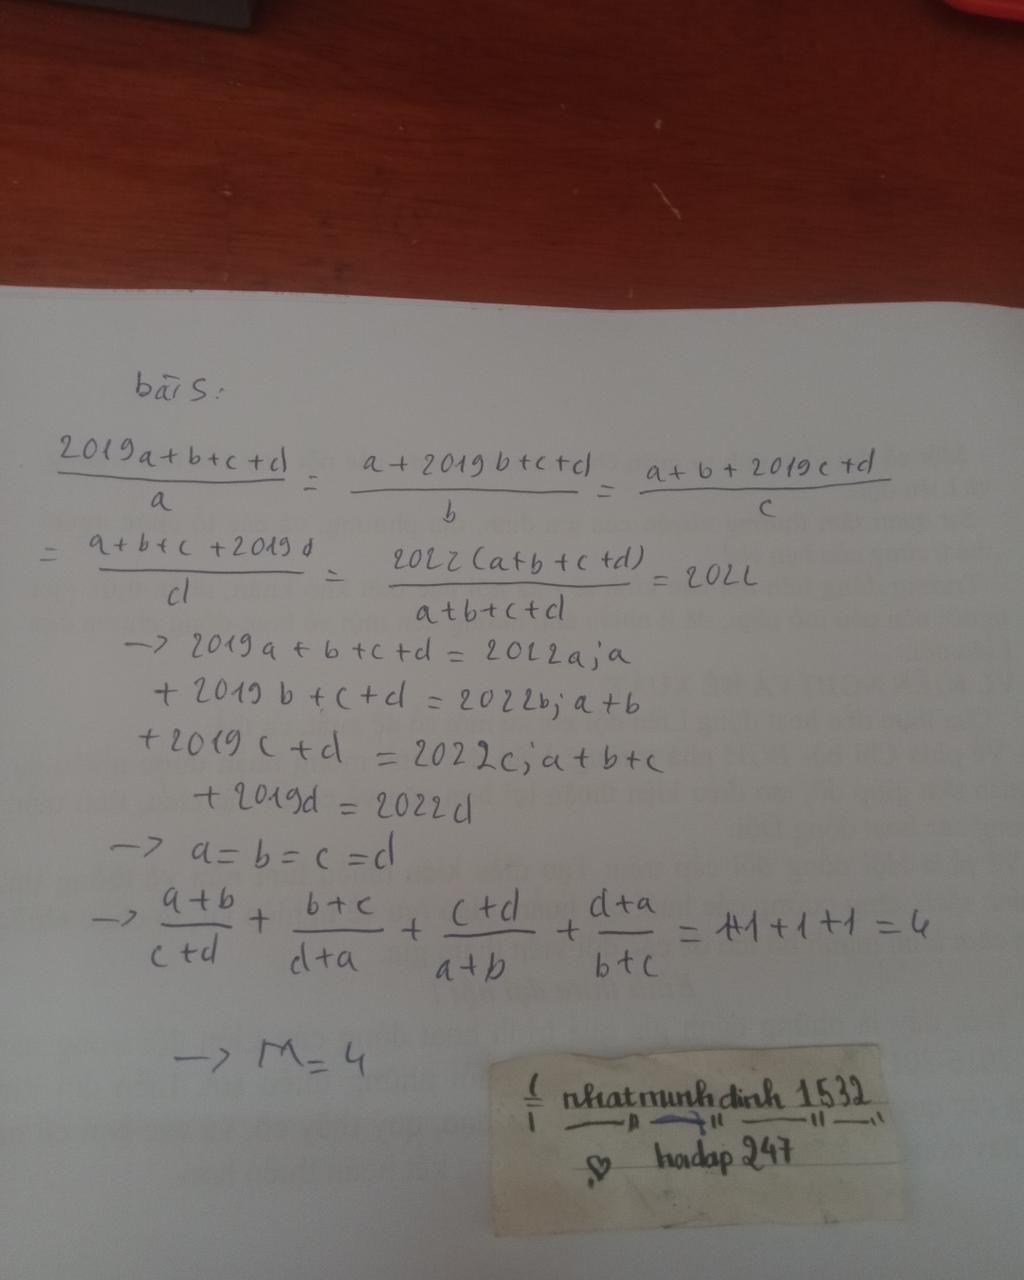 bài 5:
2019a+b+c+d/a = a+2019b+c+d/b = a+b+2019c+d/c
= a+b+c+2019d/d = 2022(a+b+c+d)/a+b+c+d = 2022
→ 2019a+b+c+d = 2022a; a
+ 2019b+c+d = 2022b; a+b
+ 2019c+d = 2022c; a+b+c
+ 2019d = 2022d
→ a=b=c=d
→ a+b/c+d + b+c/d+a + c+d/a+b + d+a/b+c = 1+1+1+1 = 4
→ M = 4
nhatminhdinh 1532
hoidap 247